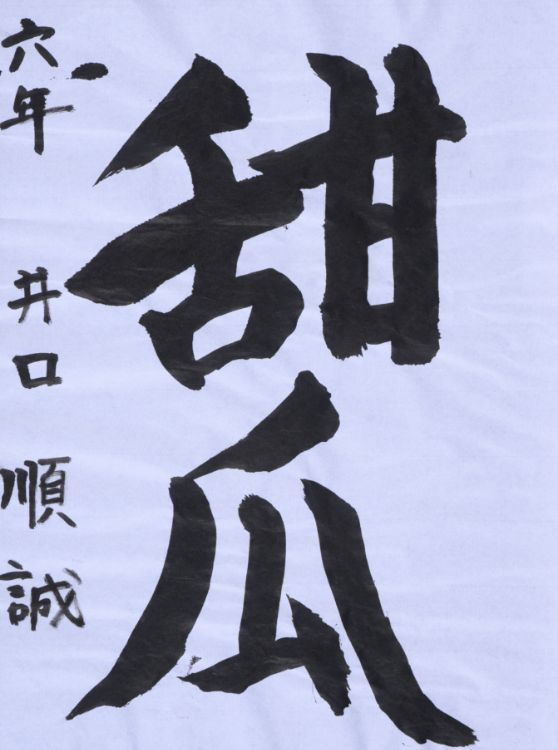 甜瓜
六年 井口 順誠